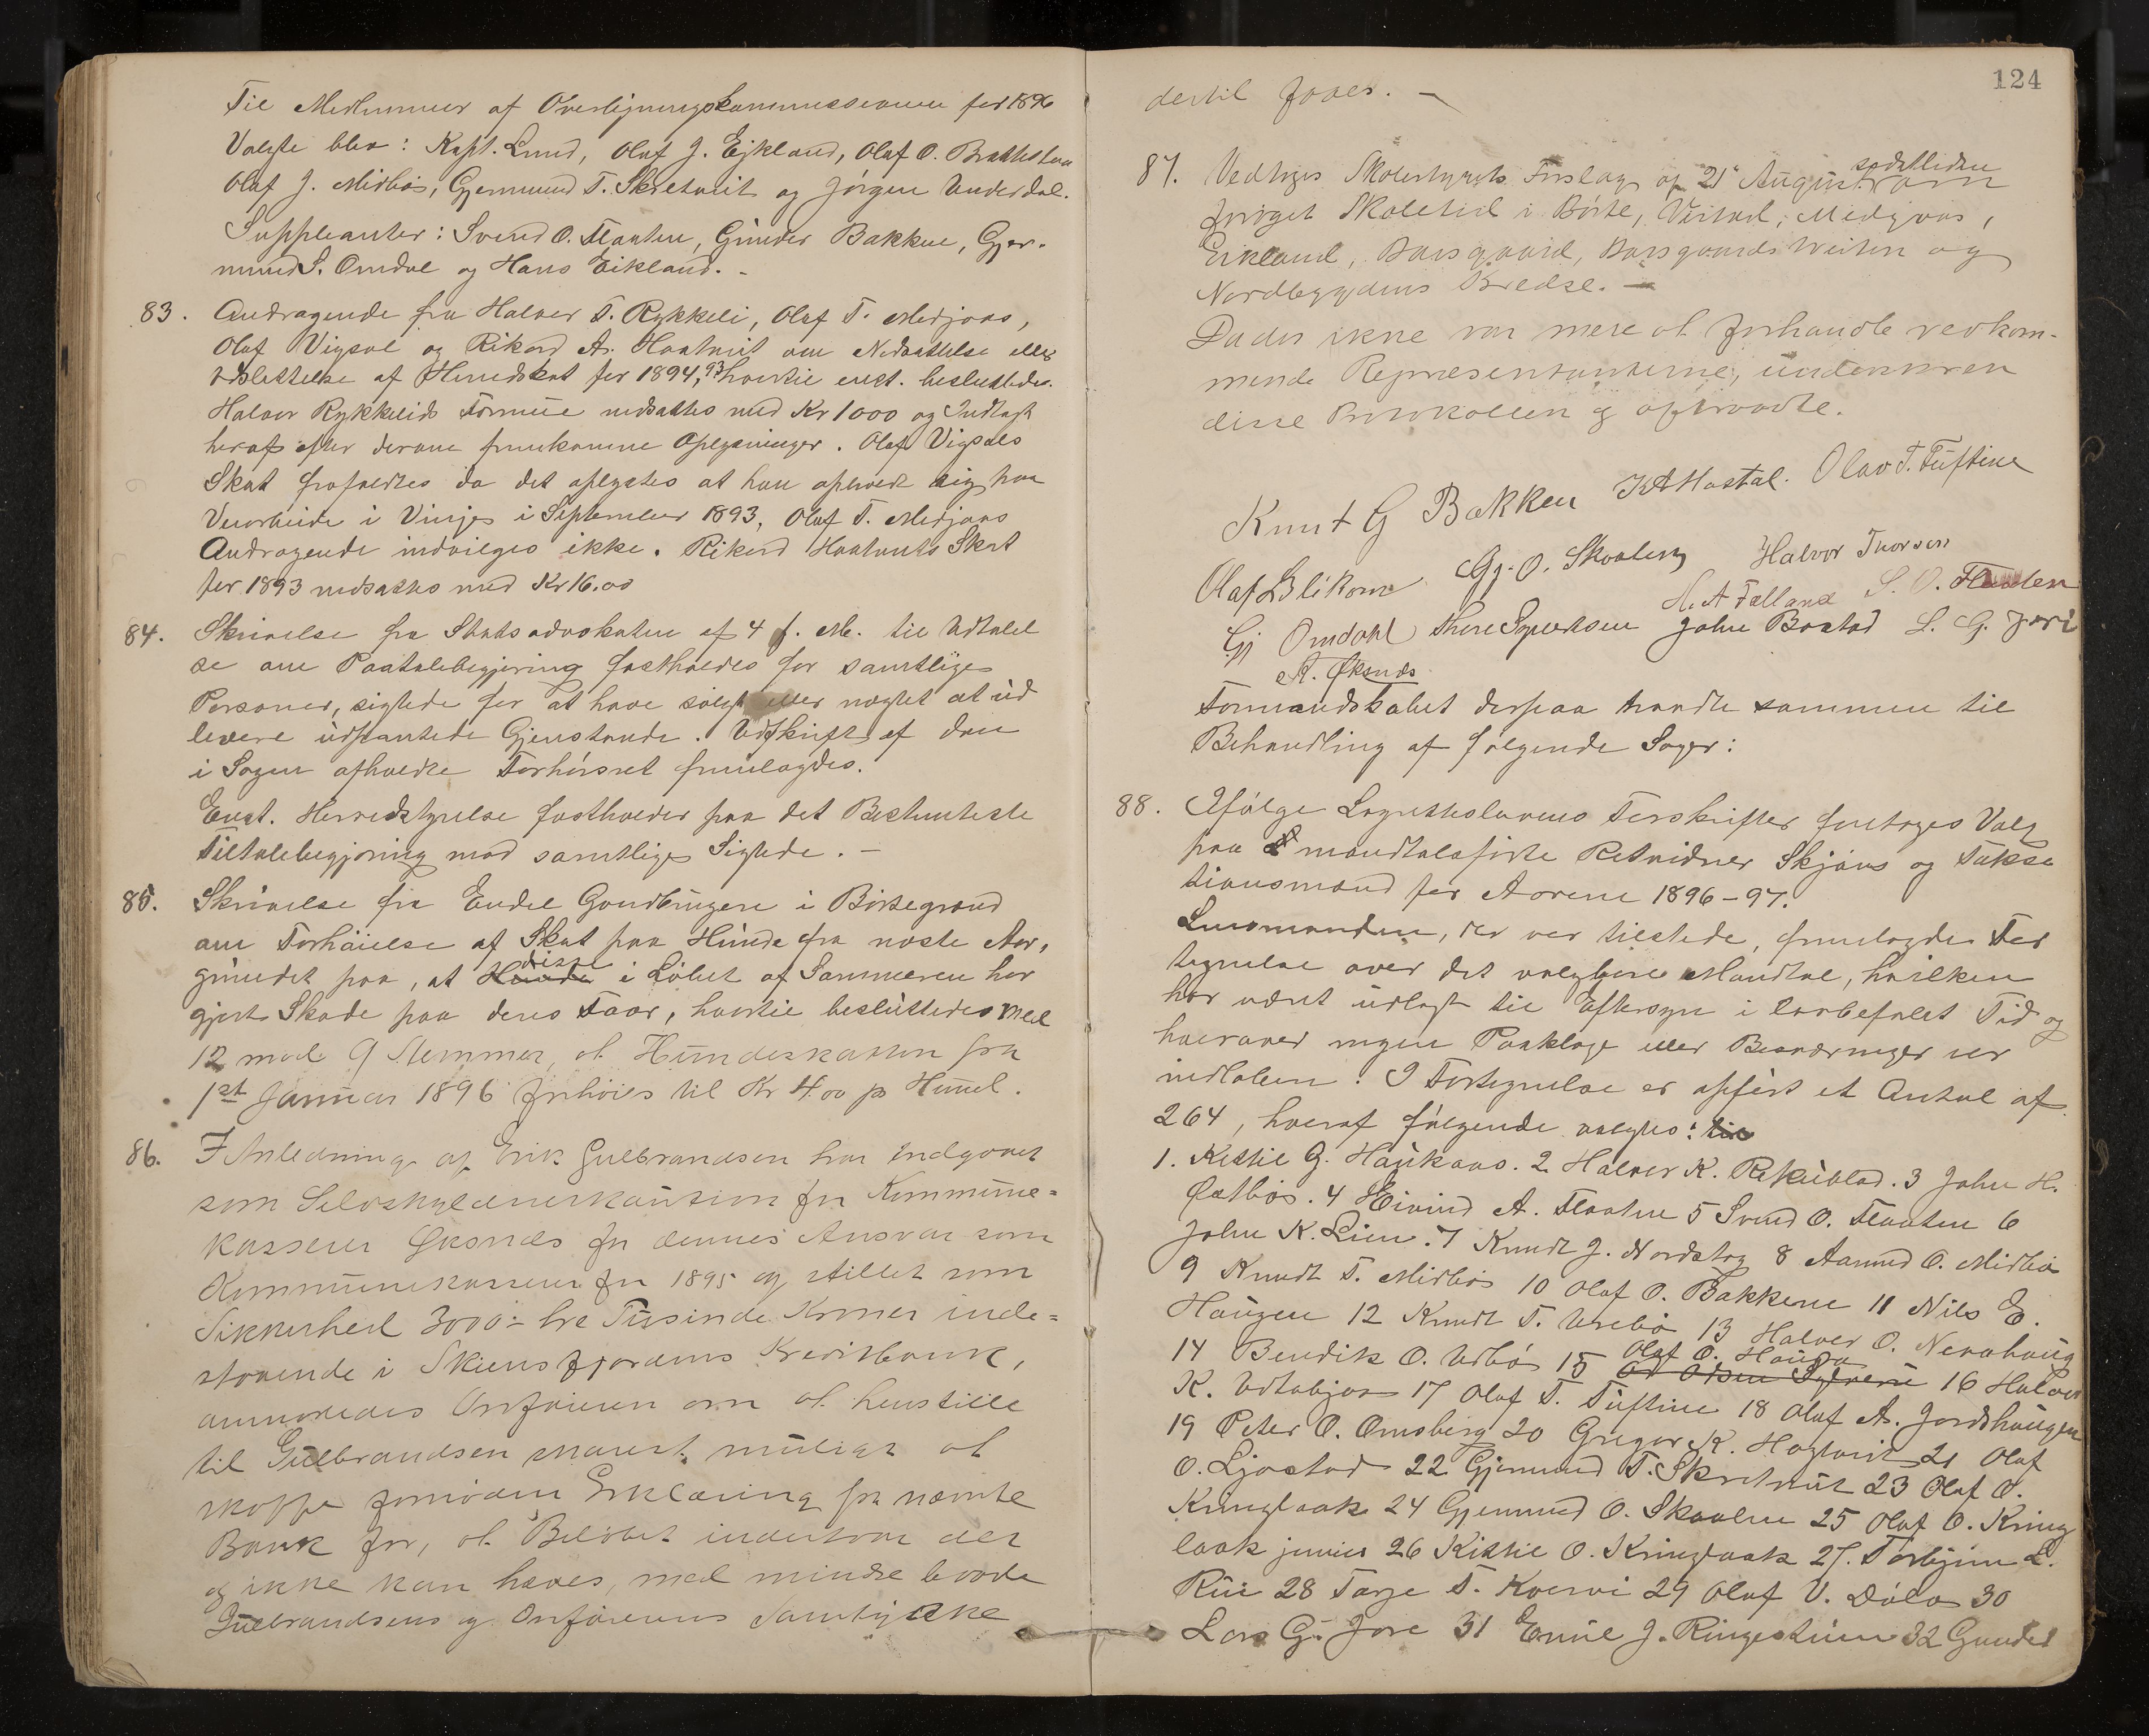 Til Medlemmer af Overligningskommissionen for 1896
Valgte blev: Kapt. Lund, Olaf J. Eikland, Olaf O. Brattestaa
Olaf J. Midbøs, Gjermund T. Skretveit og Jørgen Underdal.
Suppleanter: Svend O. Flaaten, Gunder Bakken, Gjer-
mund S. Omdal og Hans Eikland. -
83. Andragende fra Halvor T. Rykkeli, Olaf T. Medjaas,
Olaf Vigsal og Rikard A. Haatveit om Nedsættelse eller
Udslettelse af Herredskat for 1894, 93 hvortil enst. besluttedes.
Halvor Rykkelids Formue nedsattes med Kr 1000 og Indtægt
heraf efter derom fremkomne Oplysninger. Olaf Vigsals
Skat frafaldtes da det oplystes at han opholdt sig paa
Veiarbeide i Vinje i September 1893, Olaf T. Medjaas
Andragende indvilges ikke. Rikard Haatveits Skat
for 1893 nedsattes med Kr 16.00
84. Skrivelse fra Statsadvokaten af 4 f. M. til Udtalel
se om Paatalebegjæring fastholdes for samtlige
Personer, sigtede for at have solgt eller nægtet at ud
levere udpantede Gjenstande. Udskrift af den
i Sagen afholdte Forhørsret fremlagdes.
Enst. Herredstyrelse fastholder paa det Bestemteste
Tiltalebegjæring mod samtlige Sigtede. -
85. Skrivelse fra Endel Gaardbrugere i Børtegrænd
om Forhøielse af Skat paa Hunde fra næste Aar,
grundet paa, at disse i Løbet af Sommeren har
gjort Skade paa deres Faar, hvortil besluttedes med
12 mod 9 Stemmer, at Hundeskatten fra
1st Januar 1896 forhøies til Kr 4.00 pr Hund.
86. I Anledning af Erik Gulbrandsen har indgaaet
som Selvskyldnerkaution for Kommune=
kasserer Øksnæs for dennes Ansvar som
Kommunekasserer for 1895 og stillet som
Sikkerhed 3000 :- tre Tusinde Kroner inde=
staaende i Skiensfjordens Kreditbank,
anmodedes Ordføreren om at henstille
til Gulbrandsen snarest muligt at
skaffe fornøden Erklæring fra nævnte
Bank for, at Beløbet indestaar der
og ikke kan hæves, med mindre baade
Gulbrandsens og Ordførerens Samtykke
124
dertil haves. -
87. Vedtoges Skolestyrets Forslag af 21 August
forøget Skoletid i Børte, Veistad, Medjaas,
Eikland, Bargaard, Bargaards Vesten og
Nordbygdens Kredse. -
Da der ikke var mere at forhandle vedkom-
mende Repræsentanterne, underskrev
disse Protokollen og aftraadte.
Knut G Bakken K A Hastal. Olav T. Tuftine
Olaf Blikom Gj. O. Skaalen Halvor Thorsen
H. A Felland S. O. Flaaten
Gj Omdahl Thore Sigurdsen John Bostad L. G. Jore
A. Øksnæs
Formandskabet derpaa traadte sammen til
Behandling af følgende Sager:
88. Ifølge Lagretteslovens Forskrifter foretoges Valg
paa mandtalsførte Retvidner Skjøns og Takse
tionsmænd for Aarene 1896-97.
Lensmanden, der var tilstede, fremlagde For
tegnelse over det valgbare Mandtal, hvilken
har været udlagt til Eftersyn i lovbefalet Tid og
hvorover ingen Paaklage eller Besværinger er
indløben. I Fortegnelse er opført et Antal af
264, hvoraf følgende valgtes: til
1. Kittil G. Haukaas. 2 Halvor K. Rekublad. 3 John H.
Østbøs. 4 Eivind A. Flaaten 5 Svend O. Flaaten 6
John K. Lien. 7 Knudt J. Nordstog 8 Aamund O. Midbø
9 Knudt T. Midbøs 10 Olaf O. Bakkene 11 Nils E.
Haugen 12 Knudt T. Urebø 13 Halvor O. Nerahaug
14 Bendik O. Urbø 15 Olaf O. Haura 16 Halvor
K. Utabjaa 17 Olaf T. Tuftine 18 Olaf A. Jordshaugen
19 Peter O. Omsberg 20 Gregar K. Hagtveit 21 Olaf
O. Ljostad 22 Gjermund T. Skretveit 23 Olaf O.
Kringlaak 24 Gjermund O. Skaalen 25 Olaf O. Kring
laak junior 26 Kittil O. Kringlaak 27. Torbjørn L.
Rui 28 Tarje T. Kvervi 29 Olaf V. Døla 30
Lars G. Jore 31 Emil J. Ringestuen 32 Gunder